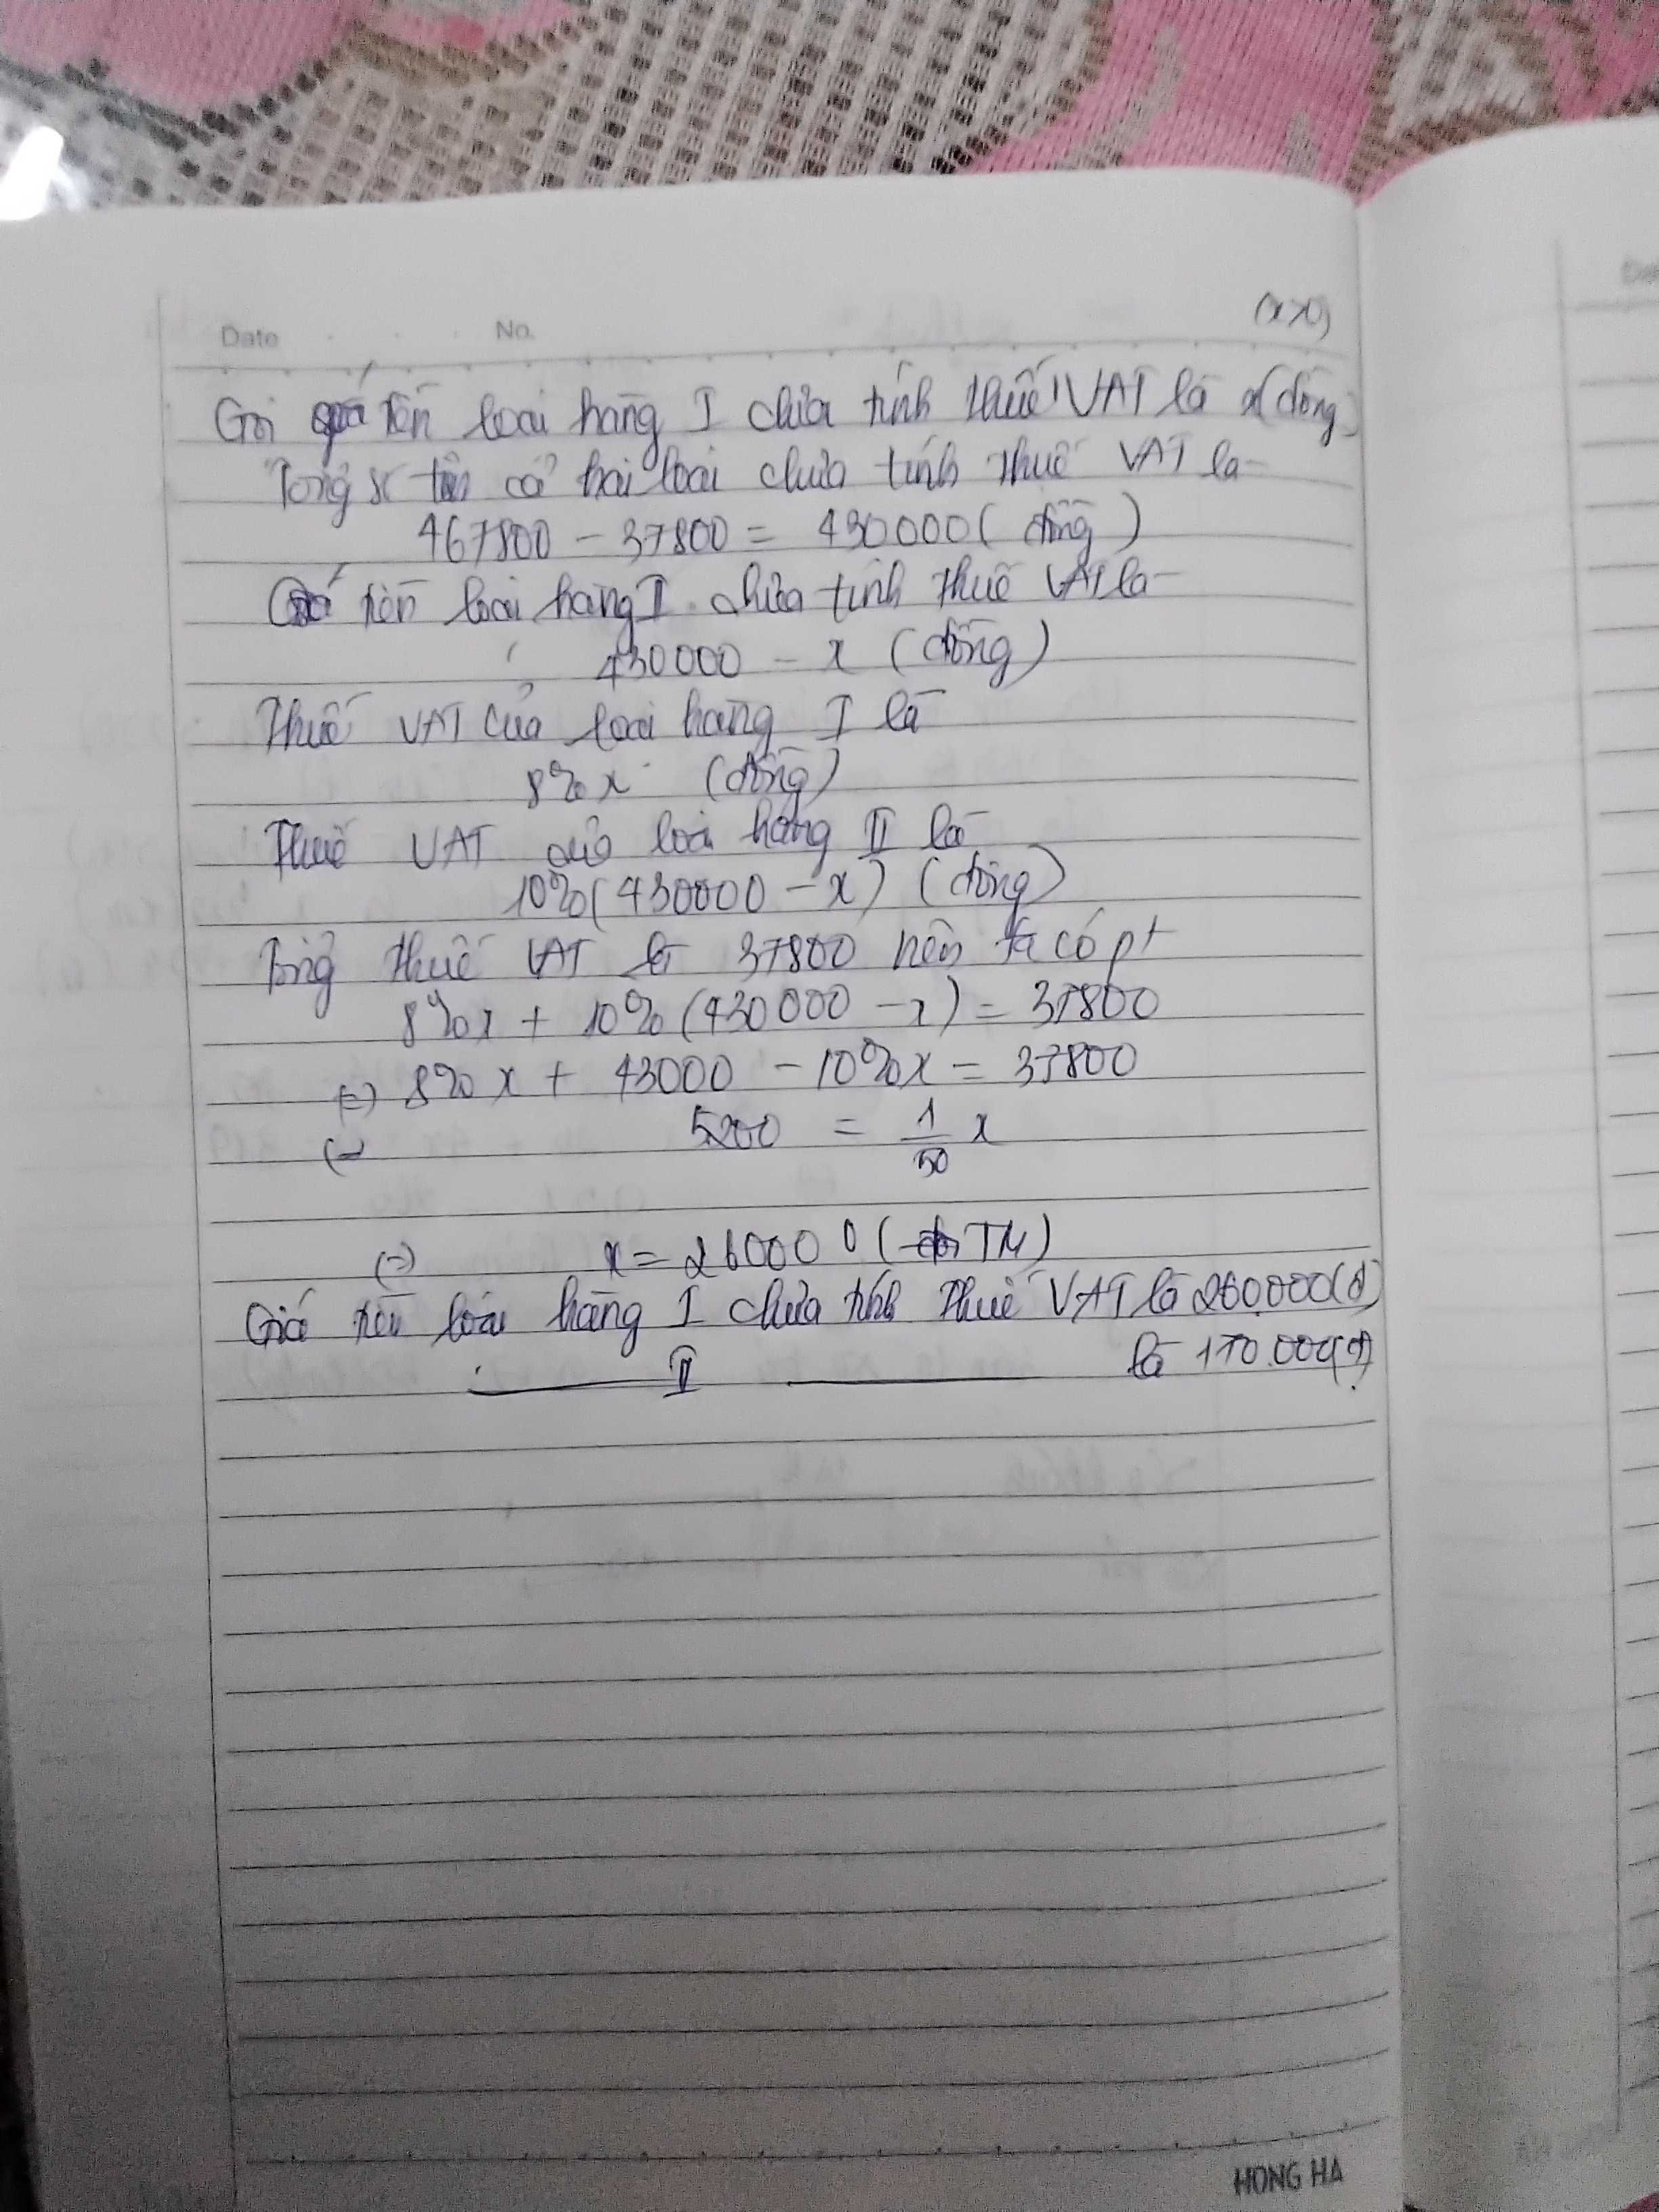 Date No. (x>0)
Gọi giá tiền loại hàng I chưa tính thuế VAT là x(đồng)
Tổng số tiền cả hai loại chưa tính thuế VAT là
467800 - 37800 = 430000 ( đồng )
Giá tiền loại hàng II chưa tính thuế VAT là
430000 - x ( đồng )
Thuế VAT của loại hàng I là
8% x (đồng)
Thuế VAT của loại hàng II là
10% ( 430000 - x ) ( đồng )
Tổng thuế VAT là 37800 nên ta có pt
8% x + 10% (430000 - x) = 37800
(=) 8% x + 43000 - 10% x = 37800
(= 5200 = 1/50 x
(=) x = 260000 ( TM )
Giá tiền loại hàng I chưa tính thuế VAT là 260.000(đ)
II là 170.000(đ)
HONG HA